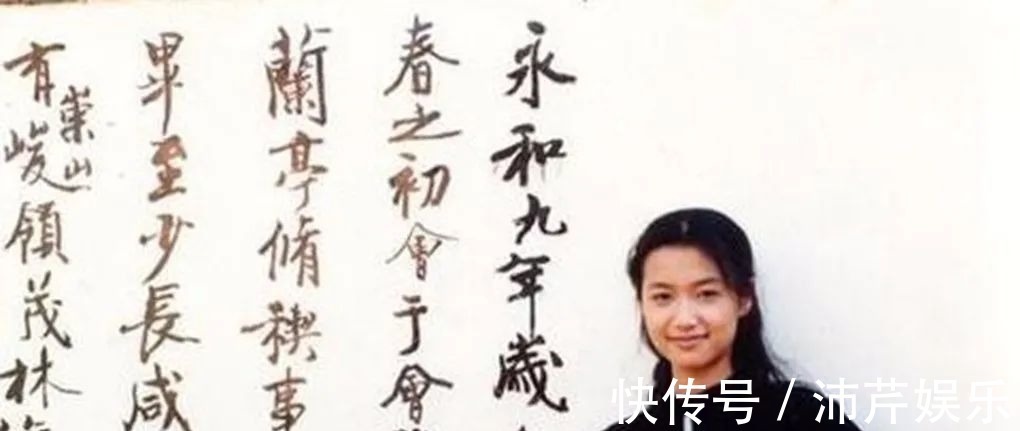 永和九年歲
春之初會于會
蘭亭脩禊事
畢至少長咸
有崇山峻領茂林
快传号 / 沛芹娱乐